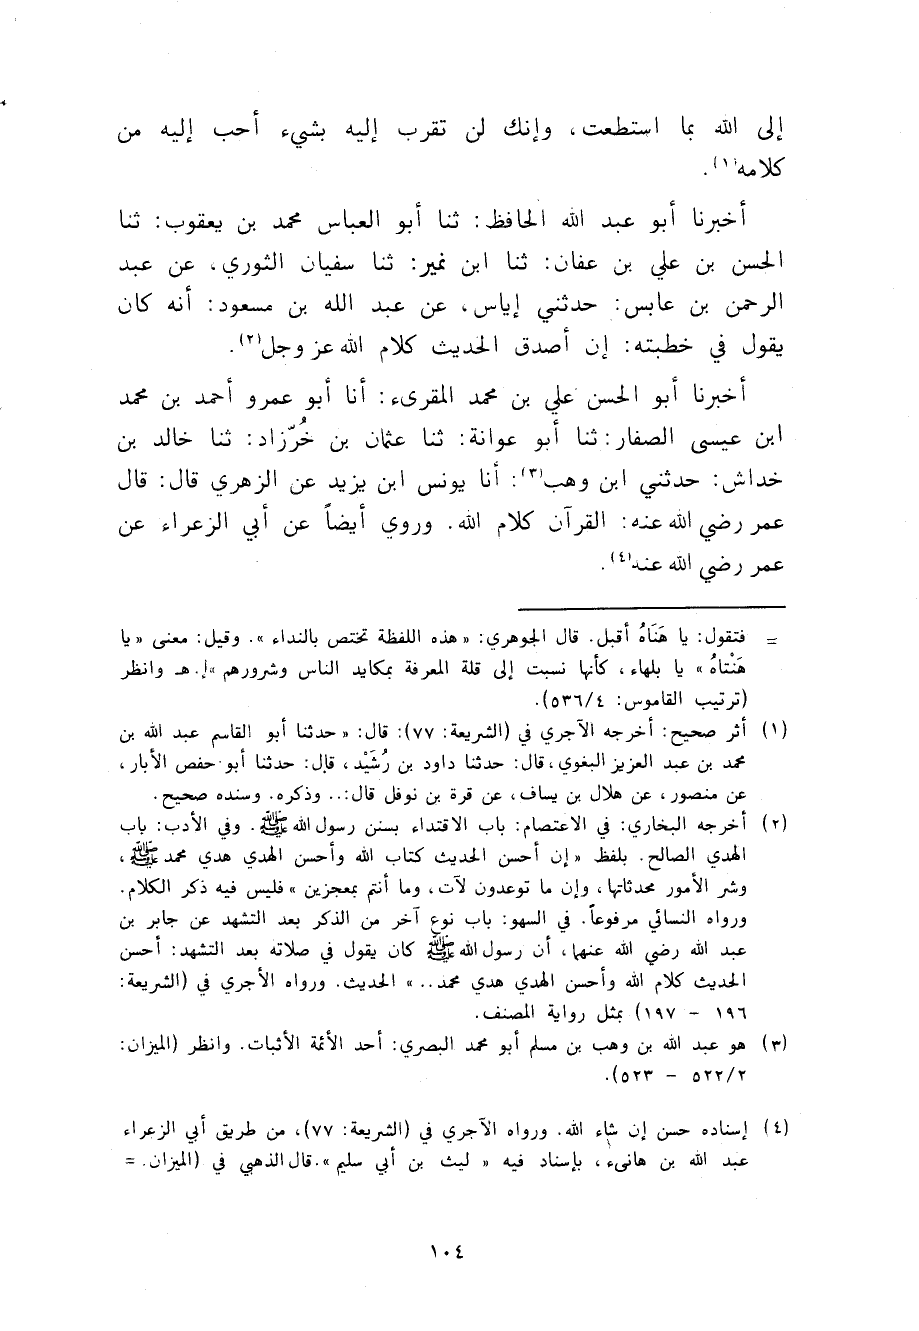 إلى الله بما استطعت، وإنك لن تقرب إليه بشيء أحب إليه من
كلامه(١).
أخبرنا أبو عبد الله الحافظ: ثنا أبو العباس محمد بن يعقوب: ثنا
الحسن بن علي بن عفان: ثنا ابن نمير: ثنا سفيان الثوري، عن عبد
الرحمن بن عابس: حدثني إياس، عن عبد الله بن مسعود: أنه كان
يقول في خطبته: إن أصدق الحديث كلام الله عز وجل(٢).
أخبرنا أبو الحسن علي بن محمد المقرىء: أنا أبو عمرو أحمد بن محمد
ابن عيسى الصفار: ثنا أبو عوانة: ثنا عثمان بن خُرّزاد: ثنا خالد بن
خداش: حدثني ابن وهب(٣): أنا يونس ابن يزيد عن الزهري قال: قال
عمر رضي الله عنه: القرآن كلام الله. وروي أيضاً عن أبي الزعراء عن
عمر رضي الله عنه(٤).
= فتقول: يا هَنَاهُ أقبل. قال الجوهري: «هذه اللفظة تختص بالنداء». وقيل: معنى «يا
هَنْتاهُ» يا بلهاء، كأنها نسبت إلى قلة المعرفة بمكايد الناس وشرورهم» ا. هـ وانظر
(ترتيب القاموس: ٥٣٦/٤).
(١) أثر صحيح: أخرجه الآجري في (الشريعة: ٧٧): قال: «حدثنا أبو القاسم عبد الله بن
محمد بن عبد العزيز البغوي، قال: حدثنا داود بن رُشَيْد، قال: حدثنا أبو حفص الأبار،
عن منصور، عن هلال بن يساف، عن قرة بن نوفل قال:.. وذكره. وسنده صحيح.
(٢) أخرجه البخاري: في الاعتصام: باب الاقتداء بسنن رسول الله ﷺ. وفي الأدب: باب
الهدي الصالح. بلفظ «إن أحسن الحديث كتاب الله وأحسن الهدي هدي محمد ﷺ،
وشر الأمور محدثاتها، وإن ما توعدون لآت، وما أنتم بمعجزين» فليس فيه ذكر الكلام.
ورواه النسائي مرفوعاً. في السهو: باب نوع آخر من الذكر بعد التشهد عن جابر بن
عبد الله رضي الله عنهما، أن رسول الله ﷺ كان يقول في صلاته بعد التشهد: أحسن
الحديث كلام الله وأحسن الهدي هدي محمد..» الحديث. ورواه الآجري في (الشريعة:
١٩٦ - ١٩٧) بمثل رواية المصنف.
(٣) هو عبد الله بن وهب بن مسلم أبو محمد البصري: أحد الأئمة الأثبات. وانظر (الميزان:
٥٢٢/٢ - ٥٢٣).
(٤) إسناده حسن إن شاء الله. ورواه الآجري في (الشريعة: ٧٧)، من طريق أبي الزعراء
عبد الله بن هانىء، بإسناد فيه «ليث بن أبي سليم». قال الذهبي في (الميزان. =
١٠٤